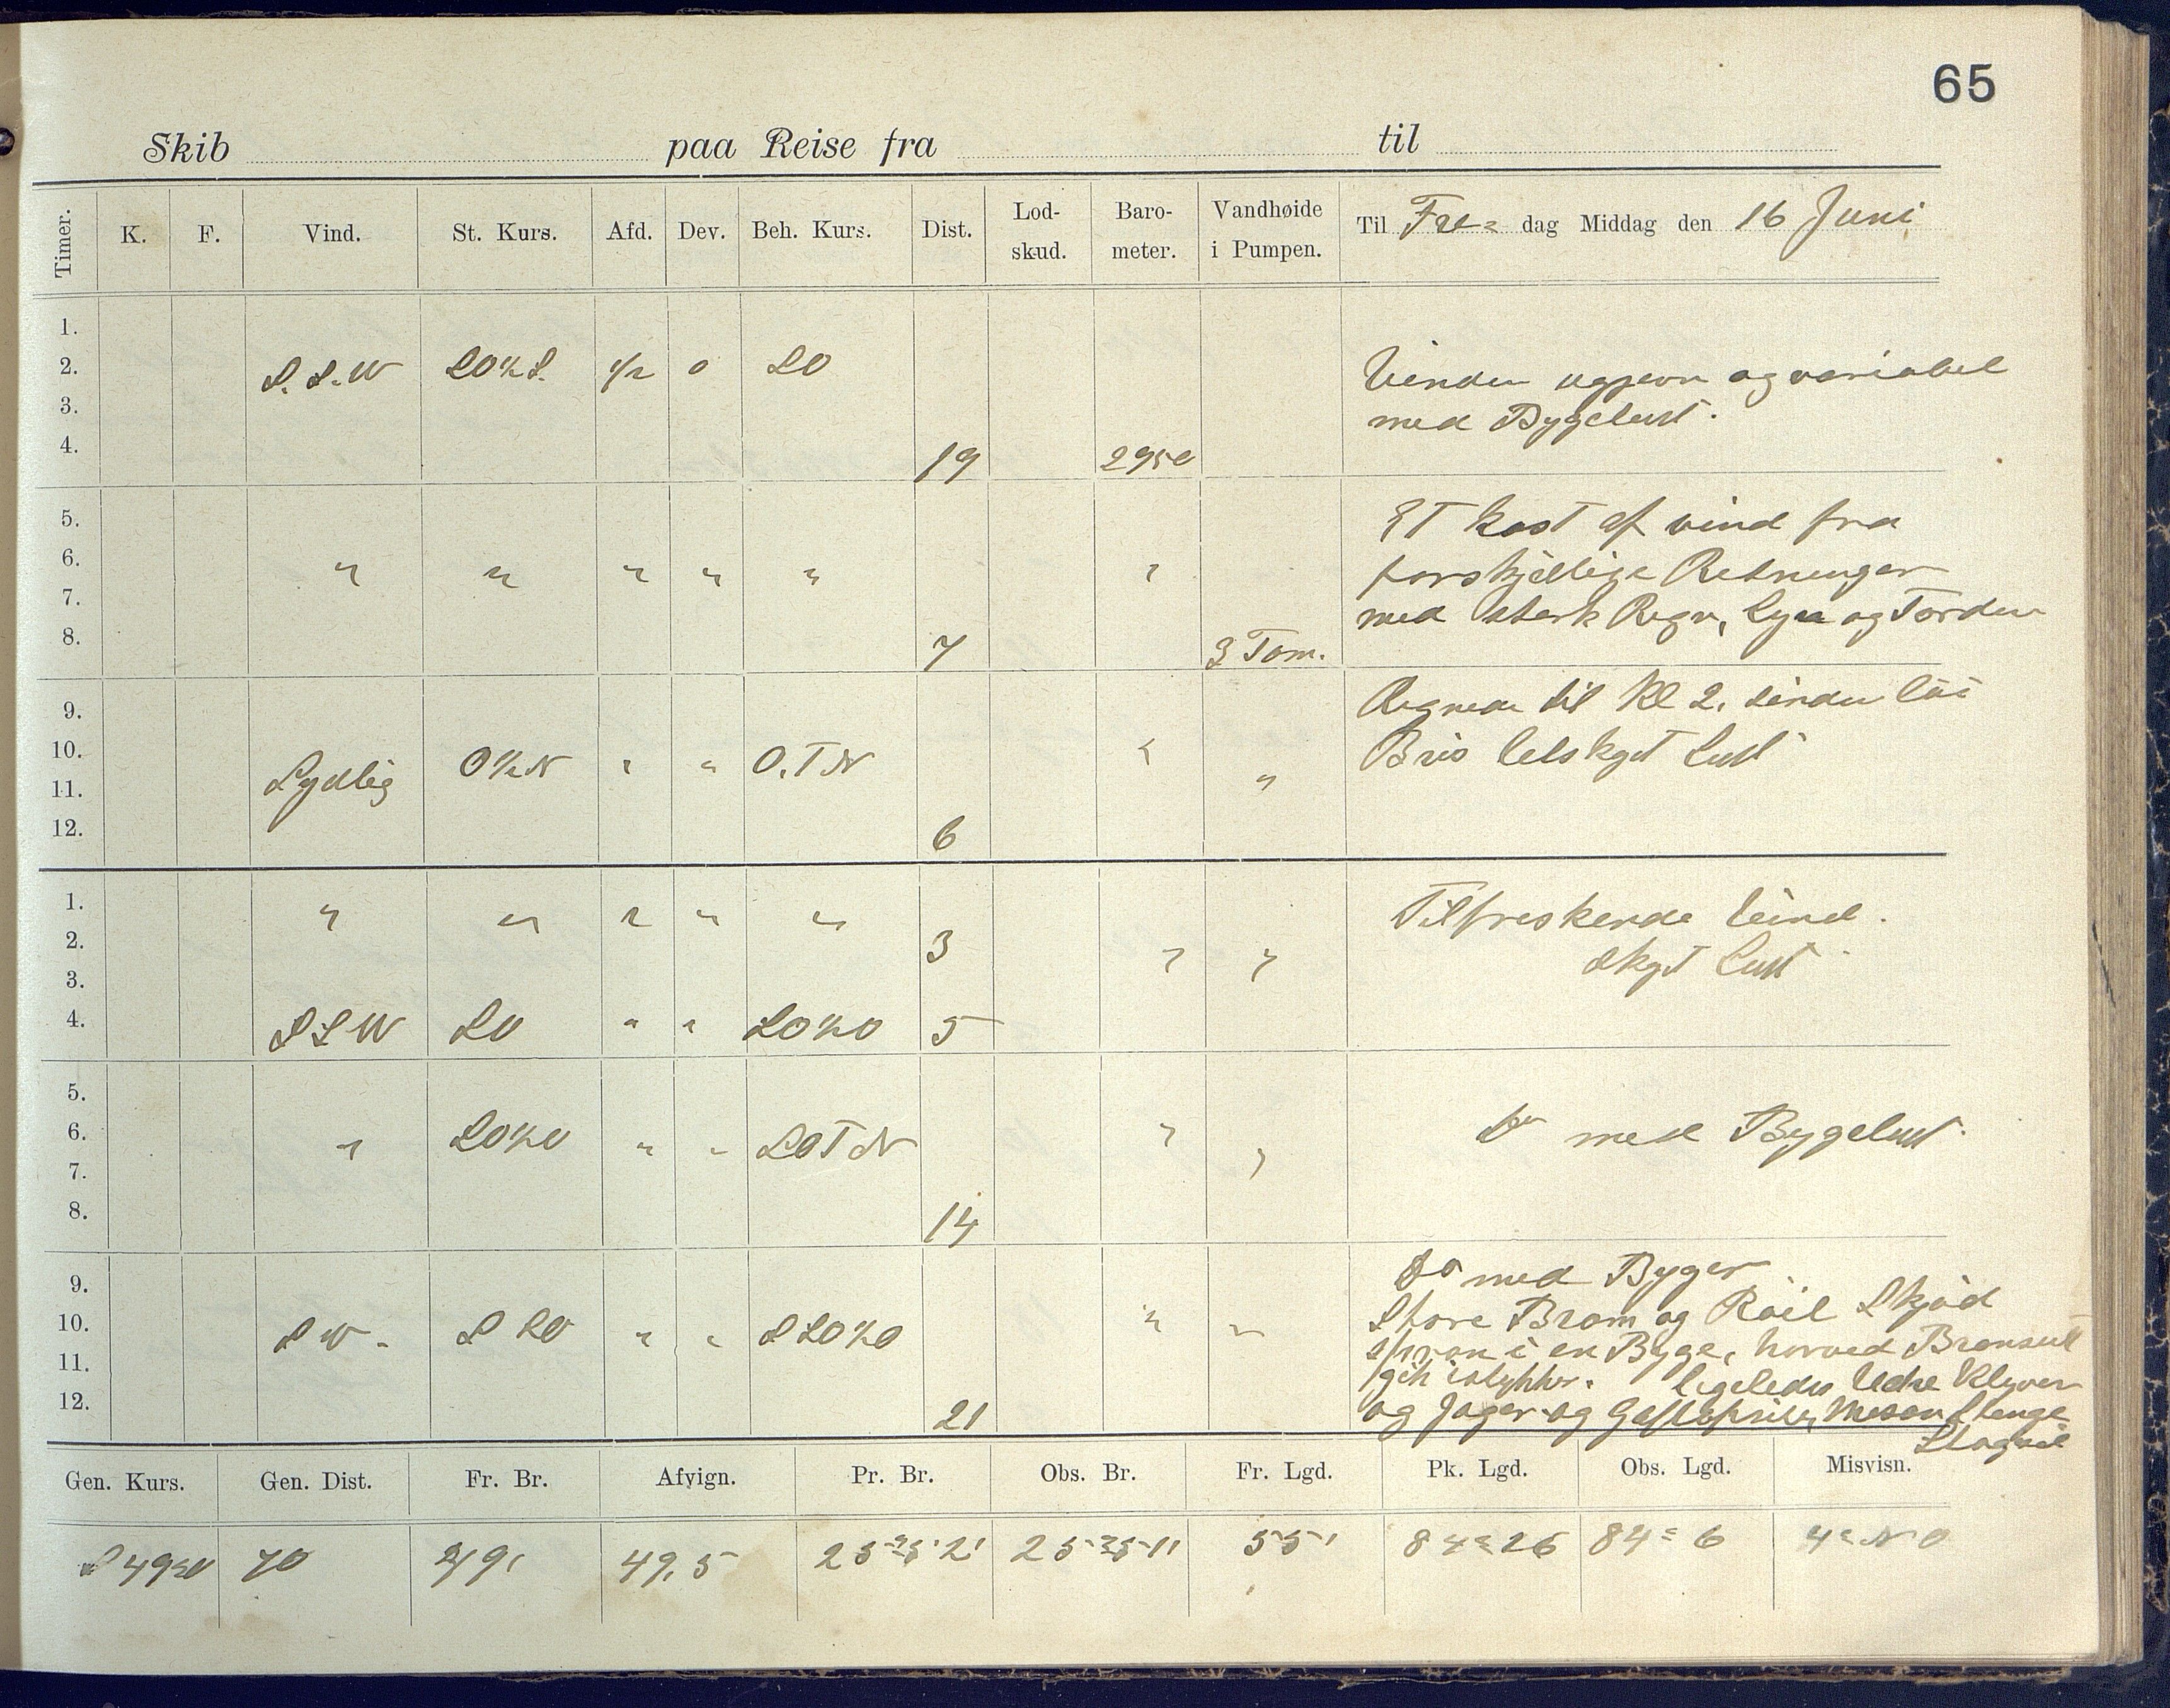 65
Skib paa Reise fra til
Timer. K. F. Vind. St. Kurs. Afd. Dev. Beh. Kurs. Dist. Lod-skud. Baro-meter. Vandhøide i Pumpen. Til Fre= dag Middag den 16 Juni
1.
2. S.S.W SO½S. ½ 0 SO Vinden ugjevn og variabel
3. med Bygeluft.
4. 19 2950
5. Et kast af vind fra
6. " " " " " " forskjellige Retninger
7. med sterk Regn, Lyn og Torden
8. 7 3 Tom.
9. Regnede til Kl 2, siden löi
10. Sydlig O½N " " O.T.N " " Bris letskyet Luft
11.
12. 6
1. " " " " " Tilfreskende Vind.
2. 3 " " Skyet Luft
3.
4. SSW SO " " SO½O 5
5.
6. " SO½O " " SOTN " " Do med Bygeluft.
7.
8. 14
9. Do med Byger
10. SW. SSO " " SSO½O " " Store Bram og Röil Skjöd
11. i en Byge, hvorved Bramseil
gik istykker. ligeledes Udre Klyver
12. 21 og Jager og Mesan Stenge
Stagseil
Gen. Kurs. Gen. Dist. Fr. Br. Afvign. Pr. Br. Obs. Br. Fr. Lgd. Pk. Lgd. Obs. Lgd. Misvisn.
S 49°O 70 49,5 55' 84° 26 84° 6 4° NO